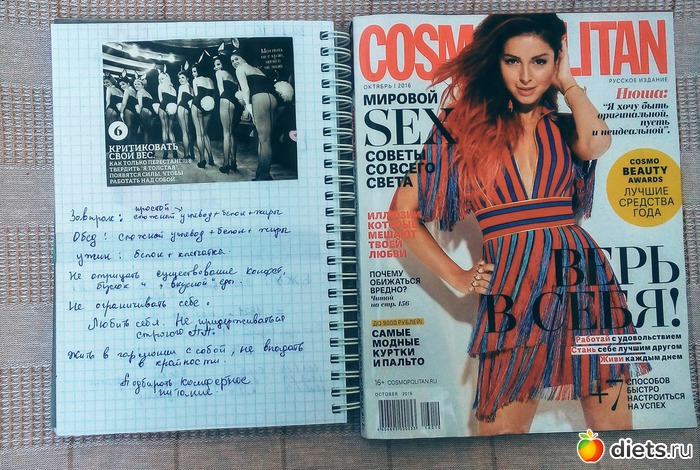 6
КРИТИКОВАТЬ
СВОЙ ВЕС.
КАК ТОЛЬКО ПЕРЕСТАНЕШЬ
ТВЕРДИТЬ "Я ТОЛСТАЯ",
ПОЯВЯТСЯ СИЛЫ, ЧТОБЫ
РАБОТАТЬ НАД СОБОЙ.
простой
Завтрак: сложный углевод + белок + жиры
Обед: сложный углевод + белок + жиры
ужин: белок + клетчатка.
Не отрицать существование конфет,
булок и "вкусной" еды.
Не ограничивать себя.
Любить себя. Не придерживаться
строгого
Жить в гармонии с собой, не впадать
в крайности.
Подбирать комфортное
питание.
COSMOPOLITAN
ОКТЯБРЬ | 2016
РУССКОЕ ИЗДАНИЕ
МИРОВОЙ
SEX
СОВЕТЫ
СО ВСЕГО
СВЕТА
Нюша:
"Я хочу быть
оригинальной,
пусть
и неидеальной".
COSMO
BEAUTY
AWARDS
ЛУЧШИЕ
СРЕДСТВА
ГОДА
ИЛЛЮЗИИ,
КОТОРЫЕ
МЕШАЮТ
ТВОЕЙ
ЛЮБВИ
ПОЧЕМУ
ОБИЖАТЬСЯ
ВРЕДНО?
Читай
на стр. 156
ДО 9000 РУБЛЕЙ!
САМЫЕ
МОДНЫЕ
КУРТКИ
И ПАЛЬТО
16+ COSMOPOLITAN.RU
OCTOBER 2016
ВЕРЬ
В СЕБЯ!
Работай с удовольствием
Стань себе лучшим другом
Живи каждым днем
+7 СПОСОБОВ
БЫСТРО
НАСТРОИТЬСЯ
НА УСПЕХ
diets.ru